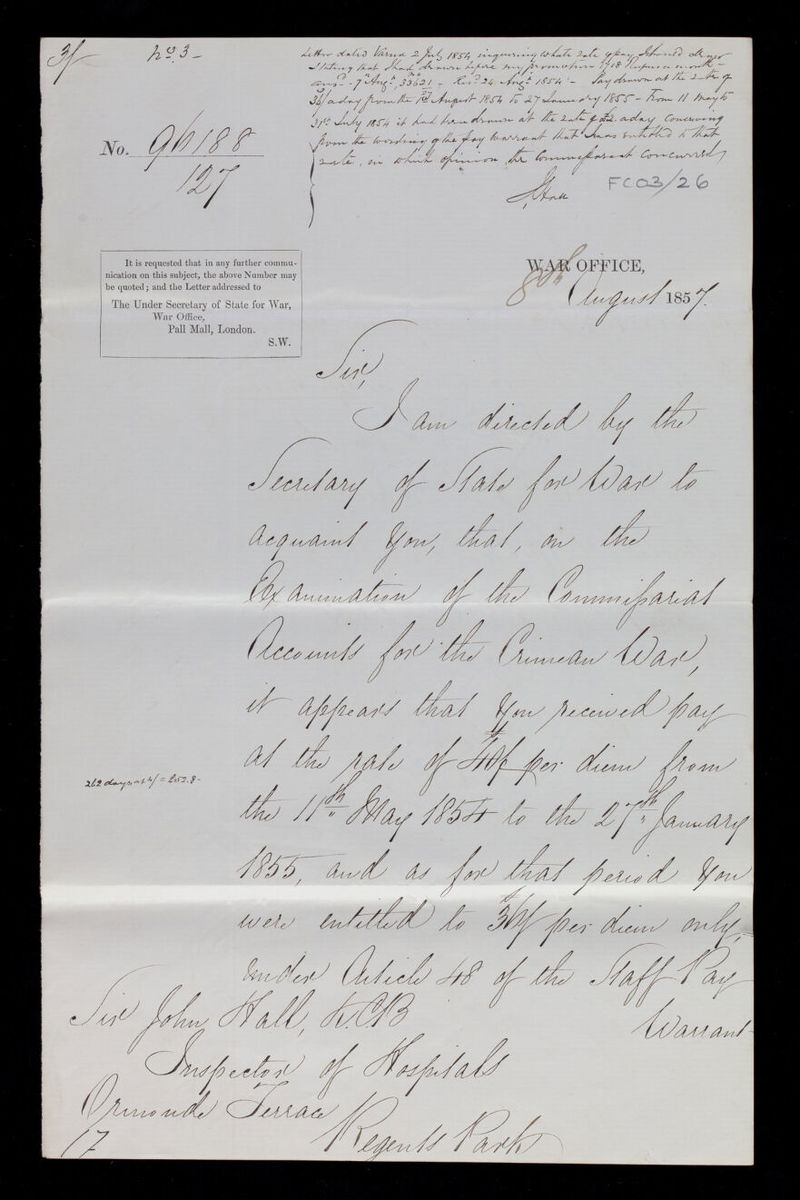 3/
No. 3 -
Letter dated Varna 2 July 1854, inquiring what rate of pay I should draw
Stating that I had drawn before my promotion
ansd. 7th Augt, 33621 - Recd 24 Augt 1854 - Pay drawn at the rate of
36/ a day from the 1st August 1854 to 27 January 1855 - From 11 May to
31st July 1854 it had been drawn at the rate of £2 a day conceiving
from the wording of the pay Warrant that I was entitled to that
rate, in which opinion the Commissariat concurred
J Hall
FC03/26
No. 96188
127
It is requested that in any further commu-
nication on this subject, the above Number may
be quoted; and the Letter addressed to
The Under Secretary of State for War,
War Office,
Pall Mall, London.
S.W.
WAR OFFICE,
8th August 1857.
Sir,
I am directed by the
Secretary of State for War to
acquaint you, that, on the
Examination of the Commissariat
Accounts for the Crimean War,
it appears that you received pay
at the rate of 40/ per diem from
262 days at 4/ = £52.8 -
the 11th May 1854 to the 27th January
1855, and as for that period you
were entitled to 36/ per diem only,
under Article 48 of the Staff Pay
Warrant
Sir John Hall, K.C.B
Inspector of Hospitals
Ormonde Terrace
17 Regents Park